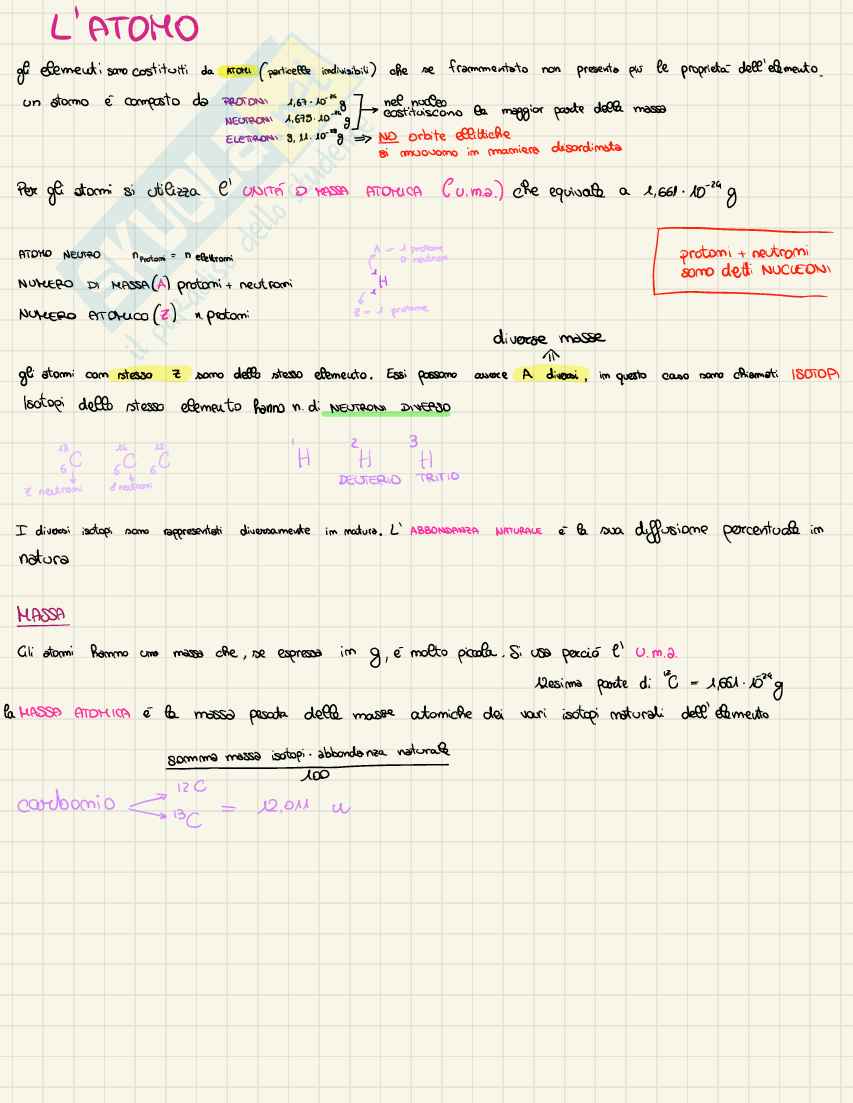 L'ATOMO
gli elementi sono costituiti da ATOMI (particelle indivisibili) che se frammentato non presenta più le proprietà dell'elemento.
un atomo è composto da PROTONI 1,67·10⁻²⁴ g
NEUTRONI 1,675·10⁻²⁴ g
→ nel nucleo
costituiscono la maggior parte della massa
ELETTRONI 9,11·10⁻²⁸ g ⇒ NO orbite ellittiche
si muovono in maniera disordinata
Per gli atomi si utilizza l' UNITÀ D MASSA ATOMICA (u.m.a.) che equivale a 1,661·10⁻²⁴ g
ATOMO NEUTRO n protoni = n elettroni
A – 1 protone
0 neutroni
protoni + neutroni
sono detti NUCLEONI
NUMERO DI MASSA (A) protoni + neutroni
H
NUMERO ATOMICO (Z) n protoni
Z – 1 protone
diverse masse
gli atomi con stesso Z sono dello stesso elemento. Essi possono avere A diversi, in questo caso sono chiamati ISOTOPI
Isotopi dello stesso elemento hanno n. di NEUTRONI DIVERSO
¹³₆C ₆C ₆C ¹H ²H ³H
7 neutroni neutroni DEUTERIO TRITIO
I diversi isotopi sono rappresentati diversamente in natura. L' ABBONDANZA NATURALE è la sua diffusione percentuale in
natura
MASSA
Gli atomi hanno una massa che, se espressa in g, è molto piccola. Si usa perciò l' u.m.a.
12esima parte di ¹²C = 1,661·10⁻²⁴ g
la MASSA ATOMICA è la massa pesata delle masse atomiche dei vari isotopi naturali dell'elemento
somma massa isotopi · abbondanza naturale
100
carbonio ¹²C
¹³C = 12,011 u
SKUOLA.net
il paradiso dello studente